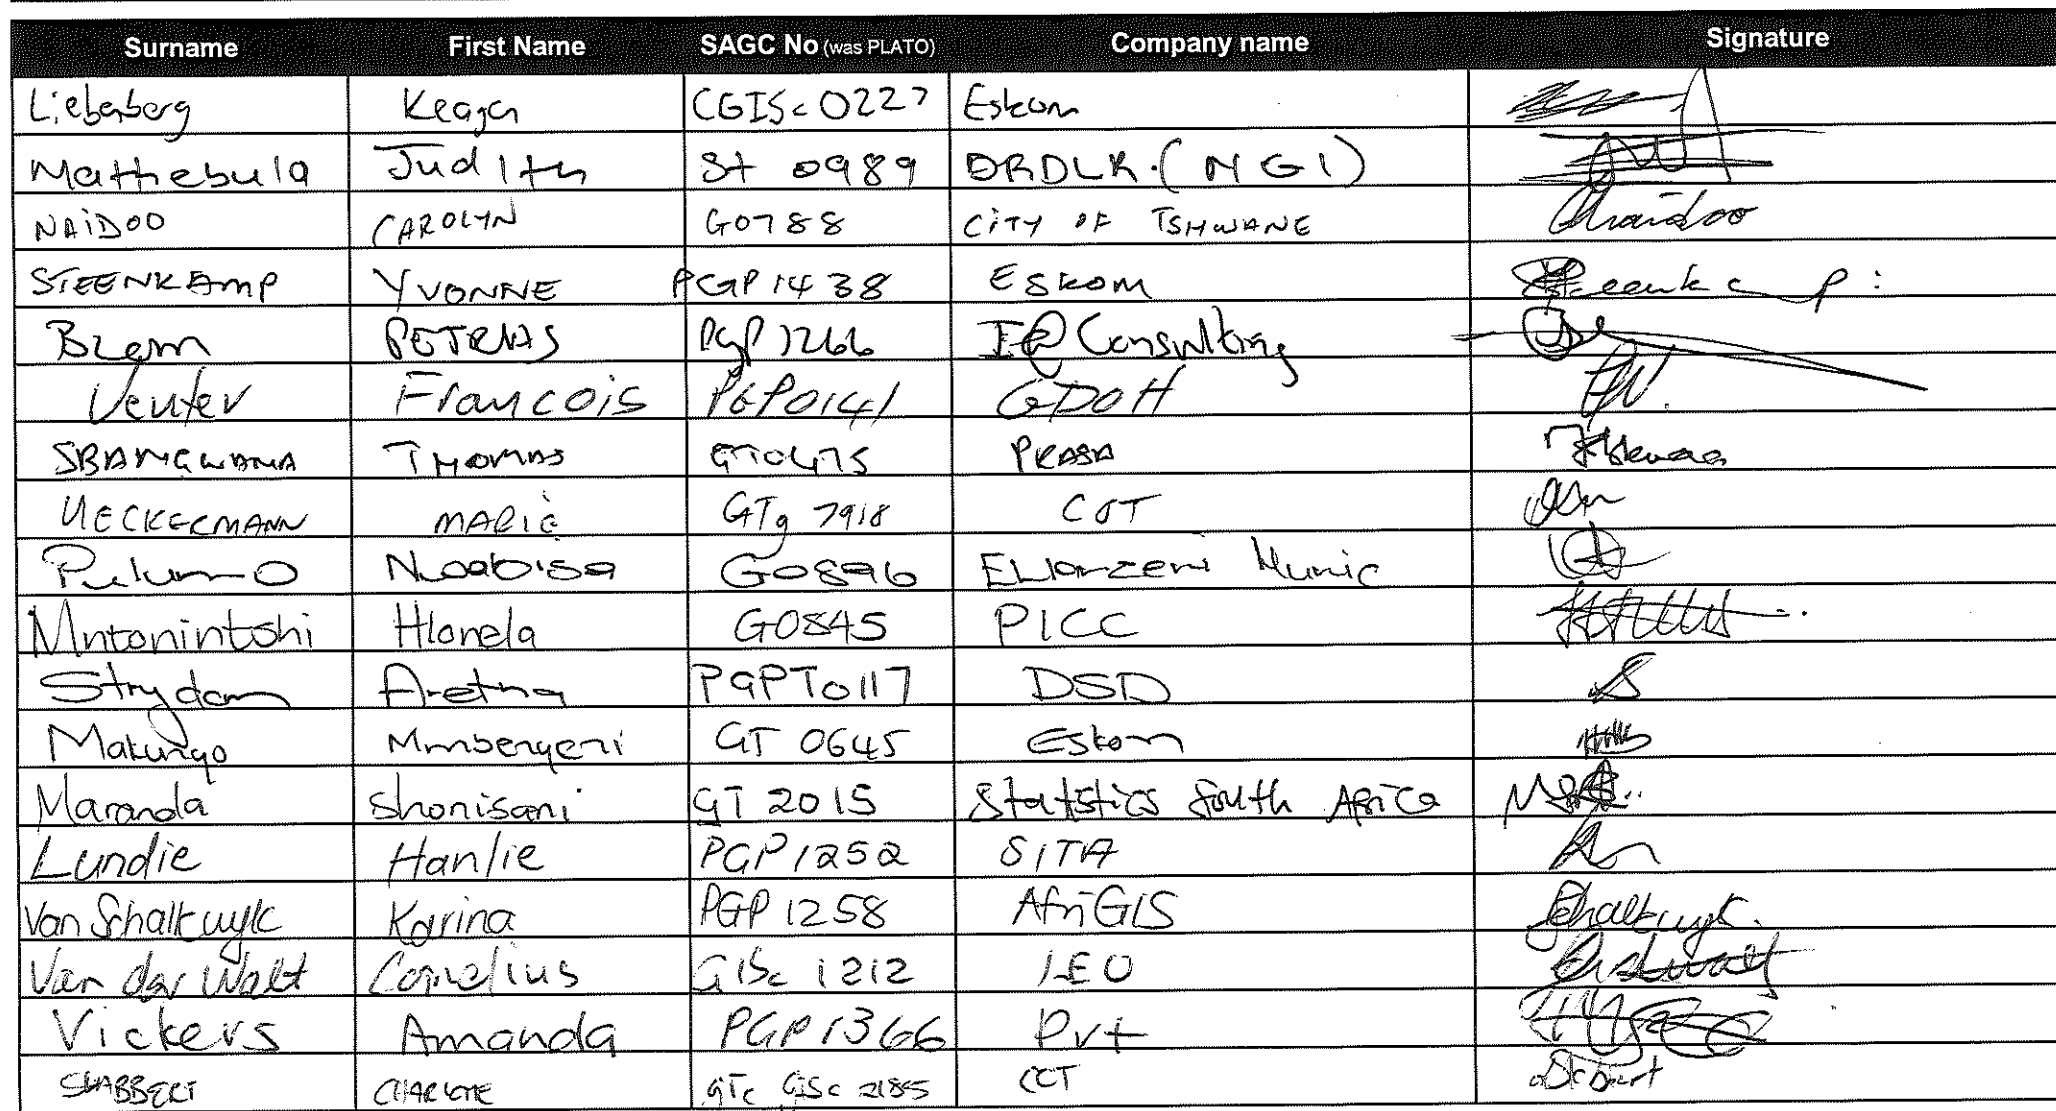 Surname First Name SAGC No (was PLATO) Company name Signature
Liebenberg Keagan CGISc 0227 Eskom
Mathebula Judith St 0989 DRDLR. (NGI)
NAIDOO CAROLYN G0788 CITY OF TSHWANE
STEENKAMP YVONNE PGP1438 Eskom Steenkamp
PETRUS PGP 1266 Consulting
Venter Francois PGP0141 GDOH
SBANGWANA THOMAS GT0475 PRASA
UECKERMANN MARIE GTg 7918 COT
G0896 Munic
Mntonintshi Hlonela G0845 PICC
Strydom Aretha PGPT0117 DSD
Makungo GT 0645 Eskom
Maranda Shonisani GT 2015 Statistics South Africa
Lundie Hanlie PGP1252 SITA
Van Schalkwyk Karina PGP 1258 AfriGIS Schalkwyk.
Van der Walt Cornelius GISc 1212
Vickers Amanda PGP1366 Pvt
SLABBERT CHARLOTTE CCT